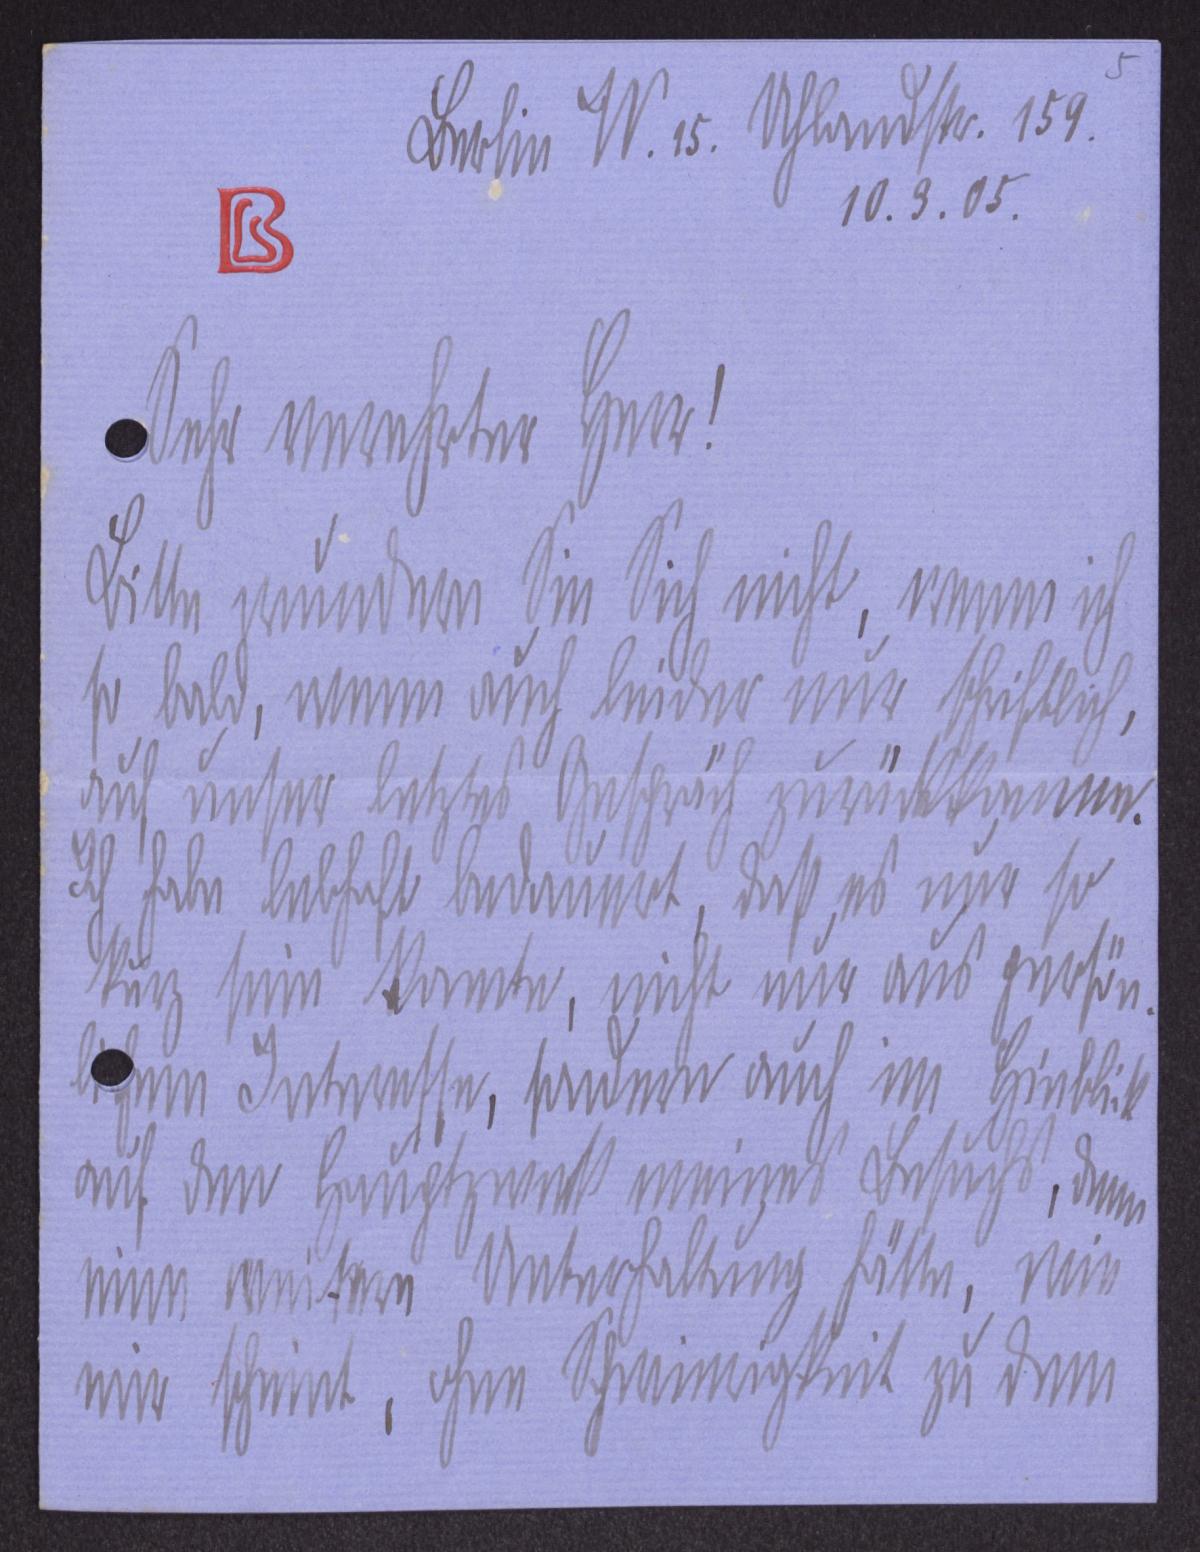 5
Berlin W. 15. Uhlandstr. 159.
10.3.05.
B
Sehr verehrter Herr!
Bitte wundern Sie Sich nicht, wenn ich
so bald, wenn auch leider nur schriftlich,
auf unser letztes Gespräch zurückkomme.
Ich habe lebhaft bedauert, daß es nur so
kurz sein konnte, nicht nur aus persön-
lichem Interesse, sondern auch im Hinblick
auf den Hauptzweck meines Besuchs, denn
eine weitere Unterhaltung hätte, wie
mir scheint, ohne Schwierigkeit zu dem